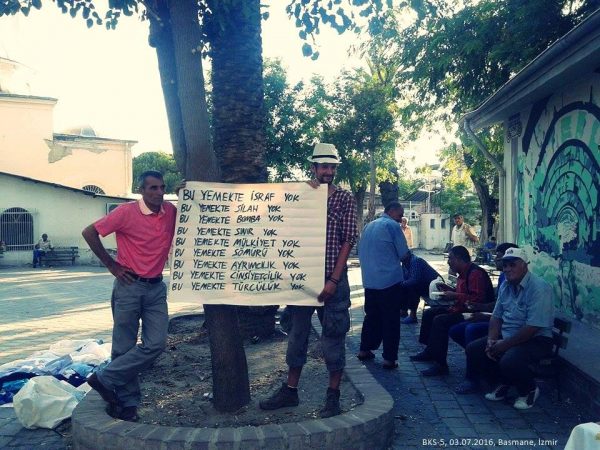 BU YEMEKTE İSRAF YOK
BU YEMEKTE SİLAH YOK
BU YEMEKTE BOMBA YOK
BU YEMEKTE SINIR YOK
BU YEMEKTE MÜLKİYET YOK
BU YEMEKTE SÖMÜRÜ YOK
BU YEMEKTE AYRIMCILIK YOK
BU YEMEKTE CİNSİYETCİLİK YOK
BU YEMEKTE TÜRCÜLÜK YOK
BKS-5, 03.07.2016, Basmane, İzmir